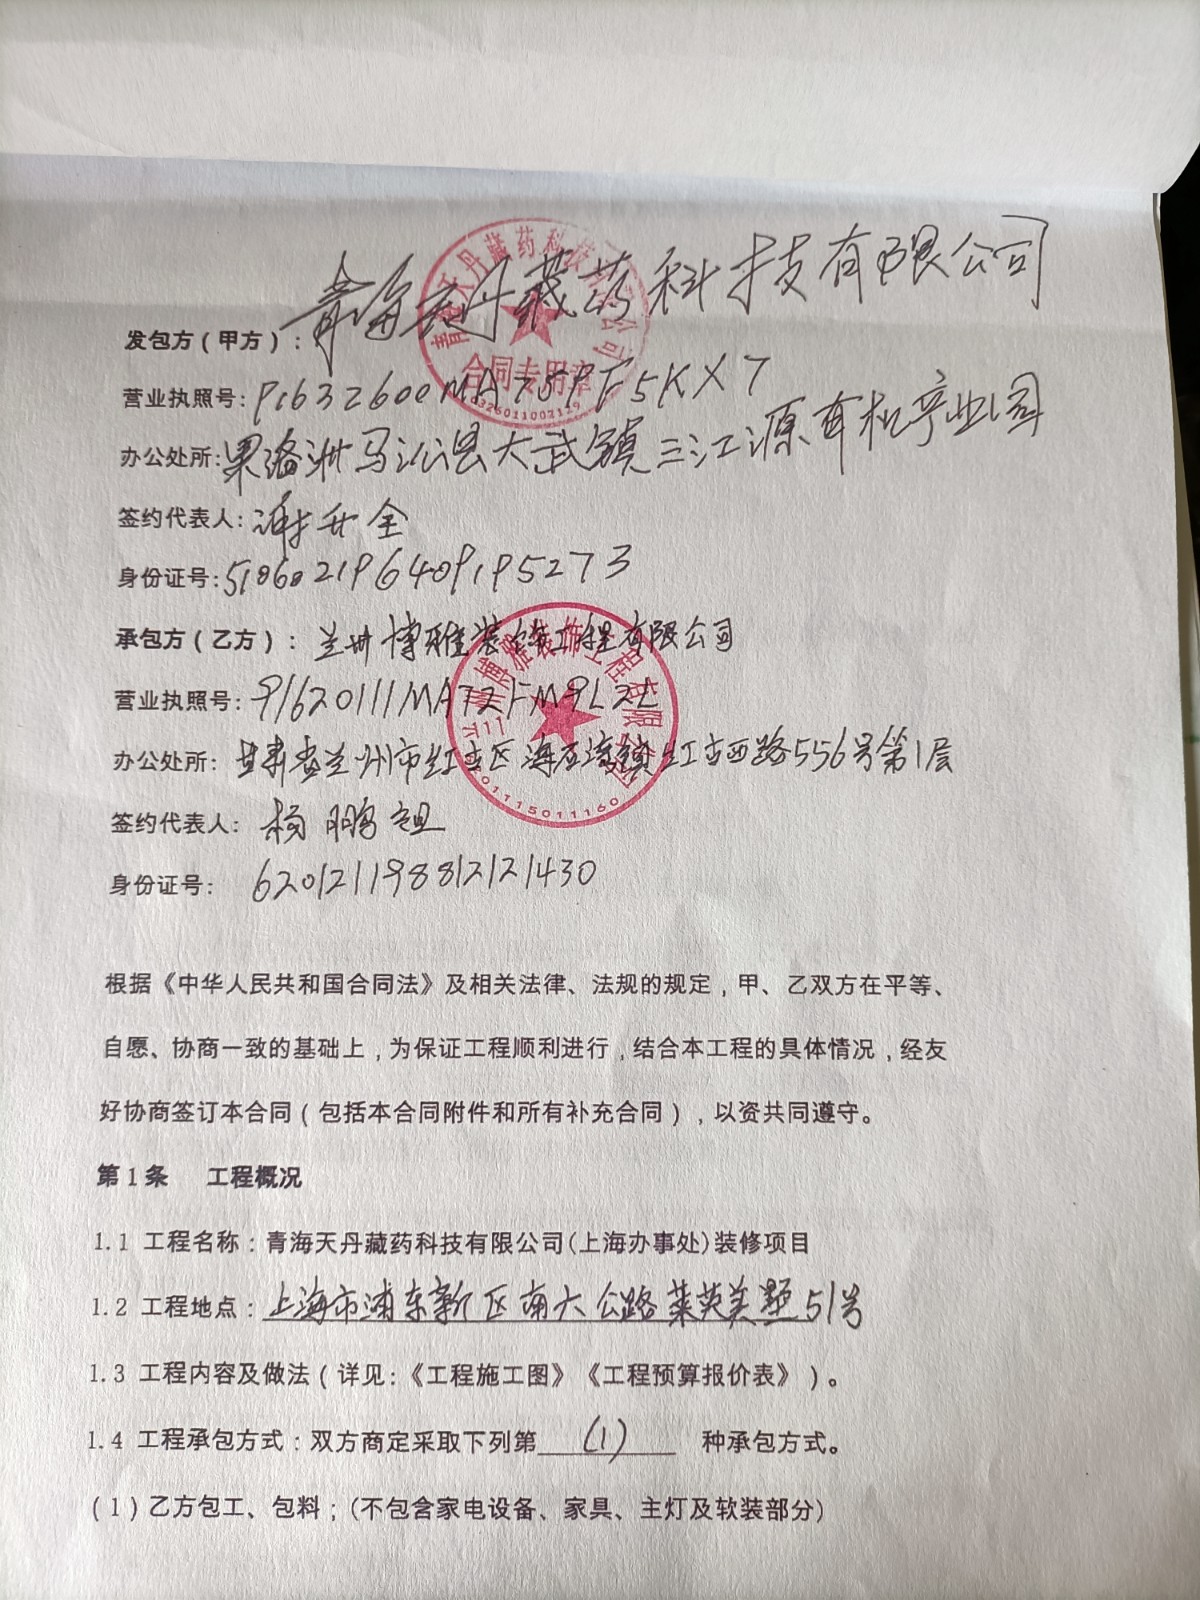 青海天丹藏药科技有限公司
发包方（甲方）:
营业执照号: 91632600MA75PF5KX7
办公处所: 果洛洲马沁县大武镇三江源有机产业园
签约代表人: 谢升全
身份证号: 510602196409195273
承包方（乙方）: 兰州博雅装饰工程有限公司
营业执照号: 91620111MA72FM9L2L
办公处所: 甘肃省兰州市红古区海石湾镇红古西路556号第1层
签约代表人: 杨鹏
身份证号: 620121198812121430
青海天丹藏药科技有限公司
合同专用章
兰州博雅装饰工程有限公司
根据《中华人民共和国合同法》及相关法律、法规的规定，甲、乙双方在平等、
自愿、协商一致的基础上，为保证工程顺利进行，结合本工程的具体情况，经友
好协商签订本合同（包括本合同附件和所有补充合同），以资共同遵守。
第1条 工程概况
1.1 工程名称：青海天丹藏药科技有限公司(上海办事处)装修项目
1.2 工程地点：上海市浦东新区南六公路莱英美题51号
1.3 工程内容及做法（详见:《工程施工图》《工程预算报价表》）。
1.4 工程承包方式：双方商定采取下列第 (1) 种承包方式。
(1)乙方包工、包料；(不包含家电设备、家具、主灯及软装部分)